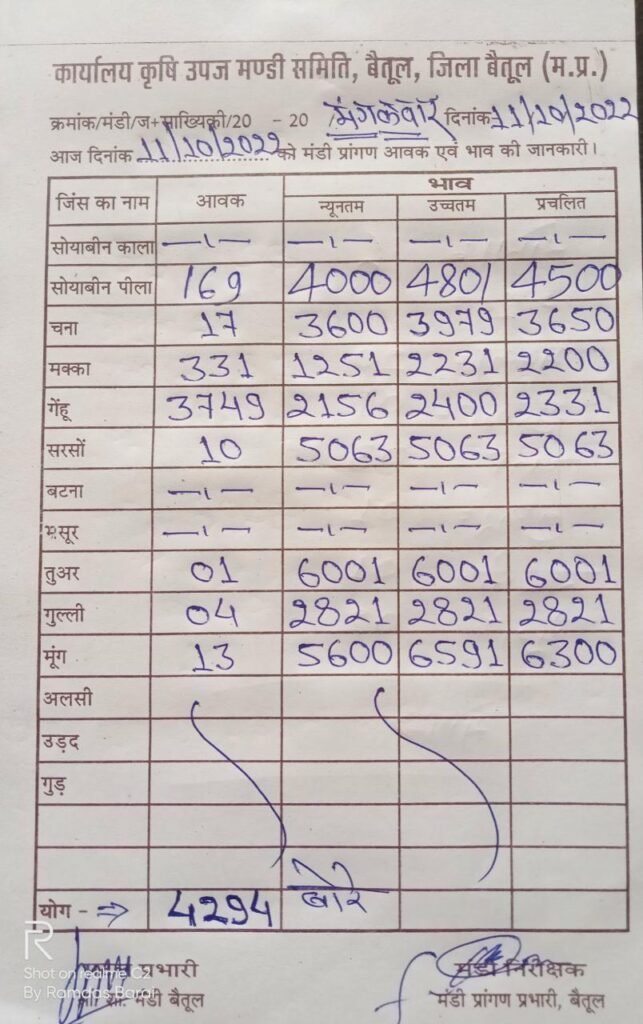 कार्यालय कृषि उपज मण्डी समिति, बैतूल, जिला बैतूल (म.प्र.)
क्रमांक/मंडी/ज+साख्यिकी/20 - 20 /मंगलवार दिनांक 11/10/2022
आज दिनांक 11/10/2022 को मंडी प्रांगण आवक एवं भाव की जानकारी।
जिंस का नाम आवक भाव
न्यूनतम उच्चतम प्रचलित
सोयाबीन काला —।— —।— —।— —।—
सोयाबीन पीला 169 4000 4801 4500
चना 17 3600 3979 3650
मक्का 331 1251 2231 2200
गेंहू 3749 2156 2400 2331
सरसों 10 5063 5063 5063
बटना —।— —।— —।— —।—
मसूर —।— —।— —।— —।—
तुअर 01 6001 6001 6001
गुल्ली 04 2821 2821 2821
मूंग 13 5600 6591 6300
अलसी
उड़द
गुड़
योग - ⇒ 4294 बोरे
प्रभारी मंडी निरीक्षक
मंडी बैतूल मंडी प्रांगण प्रभारी, बैतूल
R
Shot on realme C2
By Ramdas Barai